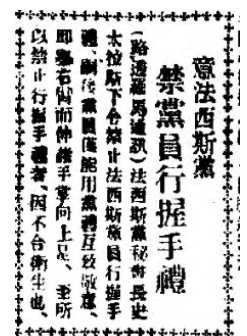 意法西斯黨
禁黨員行握手禮
(路透羅馬通訊)法西斯黨秘書長史
太拉斯下令禁止法西斯黨員行握手
禮、嗣後黨員僅能用黨禮互致敬意、
即舉右臂而伸繼手掌向上是、至所
以禁止行握手禮者、因不合衛生也、